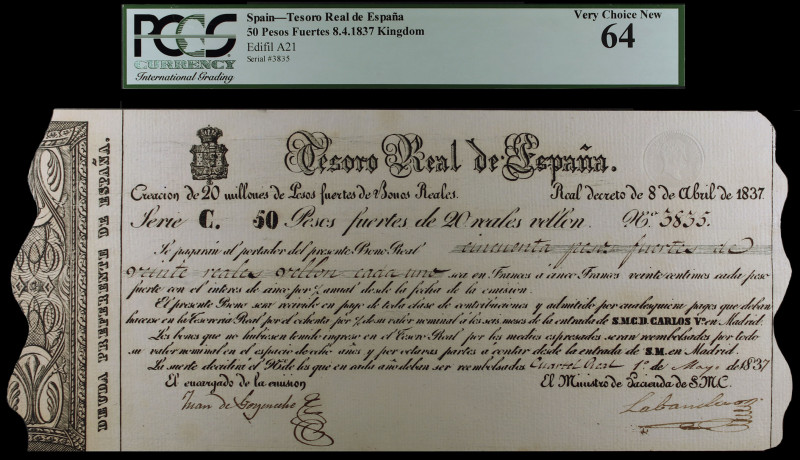 PCGS
CURRENCY
International Grading
Spain—Tesoro Real de España
50 Pesos Fuertes 8.4.1837 Kingdom
Edifil A21
Serial #3835
Very Choice New
64
DEUDA PREFERENTE DE ESPAÑA.
Tesoro Real de España.
Creacion de 20 millones de Pesos fuertes de Bonos Reales. Real decreto de 8 de Abril de 1837.
Serie C. 50 Pesos fuertes de 20 reales vellon. No. 3835.
Se pagarán al portador del presente Bono Real cincuenta pesos fuertes de
veinte reales vellon cada uno sea en Francos a cinco Francos veinte centimos cada peso
fuerte con el interes de cinco por % annual desde la fecha de la emision.
El presente Bono sera recivido en pago de toda clase de contribuciones y admitido por cualesquiera pagos que deban
hacerse en la Tesoreria Real por el ochenta por % de su valor nominal á los seis meses de la entrada de S.M.C.D. CARLOS Vo. en Madrid.
Los bonos que no hubiesen tenido ingreso en el Tesoro Real por los medios espresados seran reembolsados por todo
su valor nominal en el espacio de ocho años y por octavas partes a contar desde la entrada de S.M. en Madrid.
La suerte decidirá el Nº de los que en cada año deban ser reembolsados Cuartel Real 1º de Mayo de 1837
El encargado de la emision El Ministro de Hacienda de S.M.C.
Juan de Labandero